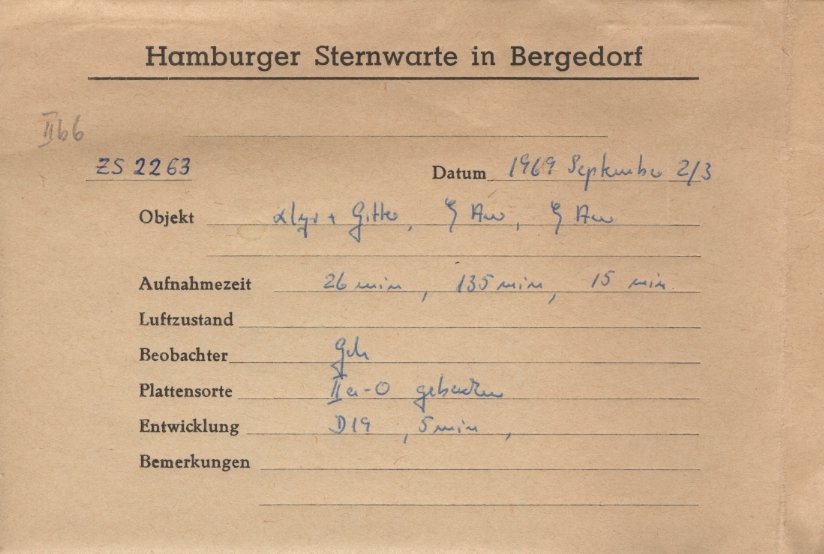 Hamburger Sternwarte in Bergedorf
II b6
ZS 2263
Datum 1969 September 2/3
Objekt α lyr + Gitter, ζ Aur, ζ Aur
Aufnahmezeit 26 min, 135 min, 15 min.
Luftzustand
Beobachter
Plattensorte IIa-O gebacken
Entwicklung D19, 5 min,
Bemerkungen